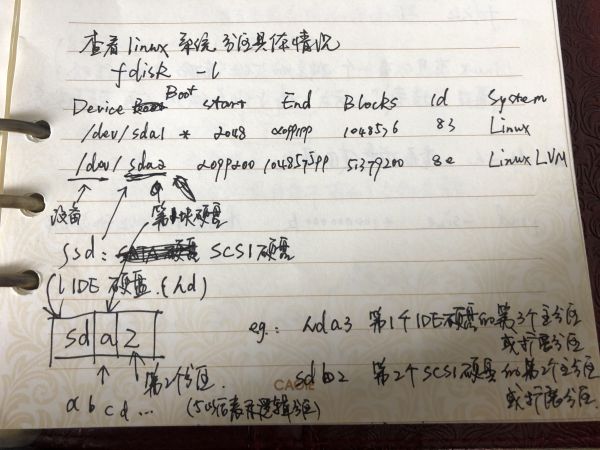 查看linux系统分区具体情况
fdisk -l
Device Boot start End Blocks Id System
/dev/sda1 * 2048 2099199 1048576 83 Linux
/dev/sda2 2099200 104857599 51379200 8e Linux LVM
设备 第1块硬盘
ssd: SCSI硬盘
IDE 硬盘.(hd)
sd a 2
eg.: hda3 第1个IDE硬盘的第3个主分区
或扩展分区
第2个分区.
sdb2 第2个SCSI硬盘的第2个主分区
或扩展分区.
a b c d ... (5以后表示逻辑分区)